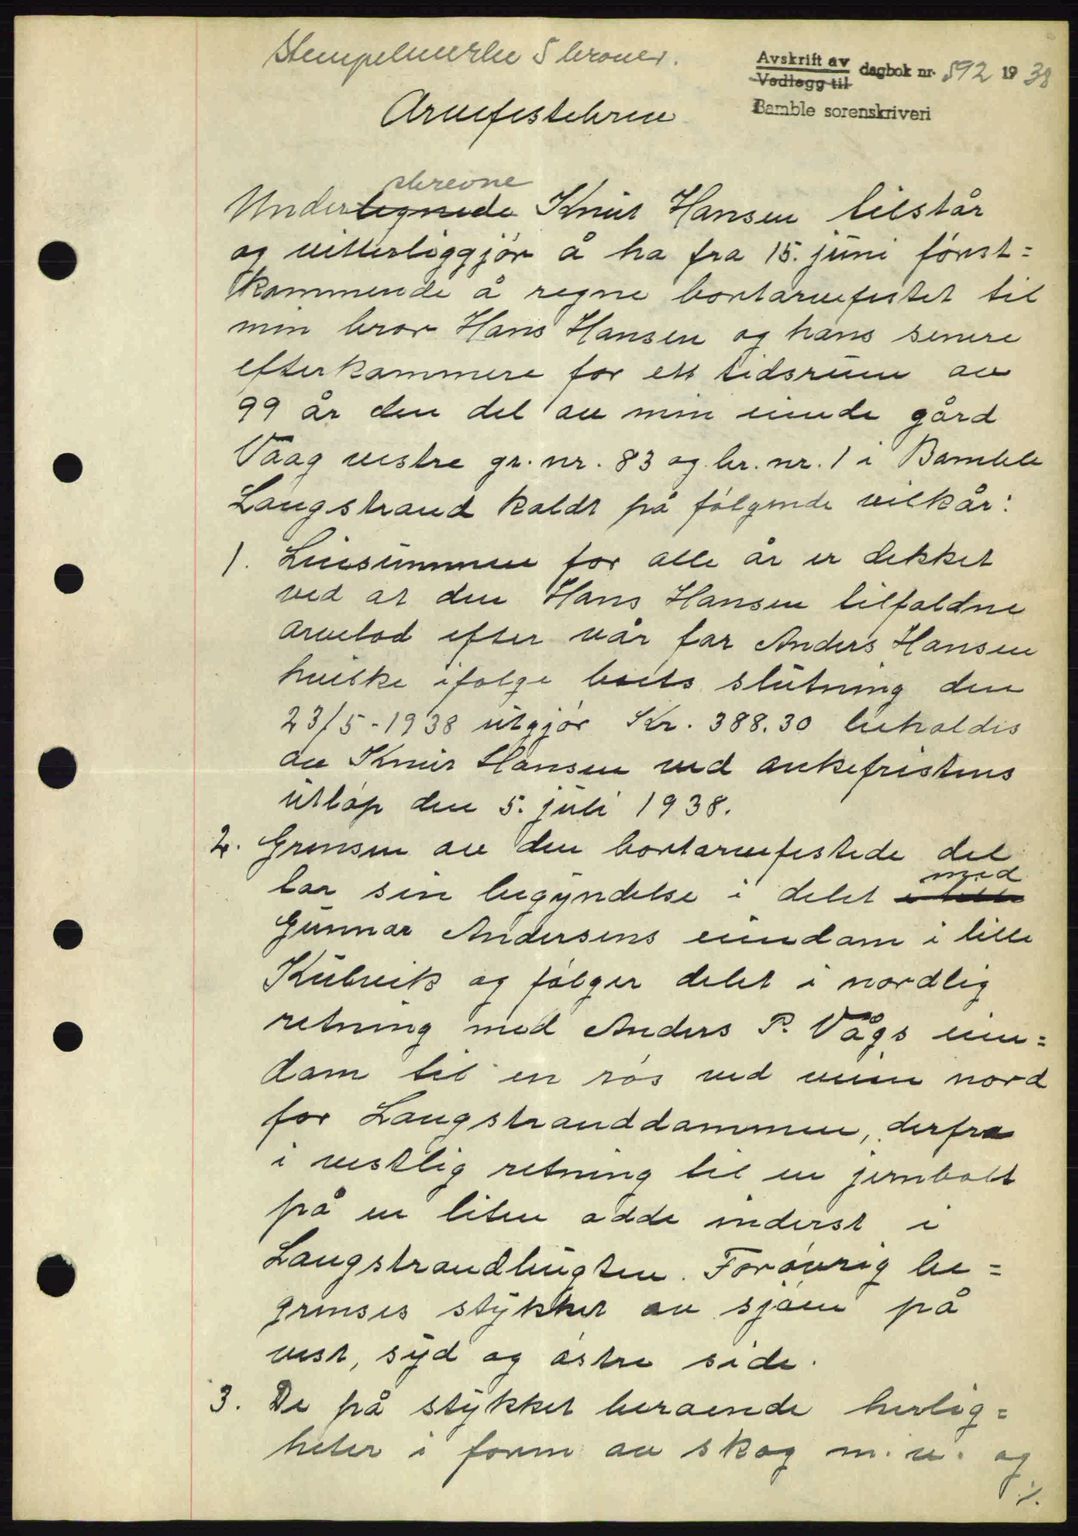 Stempelmerke 5 kroner.
Avskrift av
Vedlegg til
dagbok nr. 592 1938
Bamble sorenskriveri
Arvefestebrev
skrevne
Undertegnede Knut Hansen tilstår
og vitterliggjør å ha fra 15. juni først=
kommende å regne bortarvefestet til
min bror Hans Hansen og hans senere
efterkommere for ett tidsrum av
99 år den del av min eiende gård
Vaag vestre gr. nr. 83 og br. nr. 1 i Bamble
Langstrand kaldt på følgende vilkår:
1. Leiesummen for alle år er dekket
ved at den Hans Hansen tilfaldne
arvelod efter vår far Anders Hansen
hvilke ifølge boets slutning den
23/5-1938 utgjør Kr. 388.30 beholdes
av Knut Hansen ved ankefristens
utløp den 5. juli 1938.
2. Grensen av den bortarvefestede del
med
tar sin begyndelse i delet
Gunnar Andersens eiendom i lille
Kubvik og følger delet i nordlig
retning med Anders P. Vågs eien=
dom til en røs ved veien nord
for Langstranddammen, derfra
i vestlig retning til en jernbolt
på en liten odde inderst i
Langstrandbugten. Forøvrig be=
grenses stykket av sjøen på
vest, syd og østre side.
3. De på stykket beroende herlig=
heter i form av skog m. v. og
./.